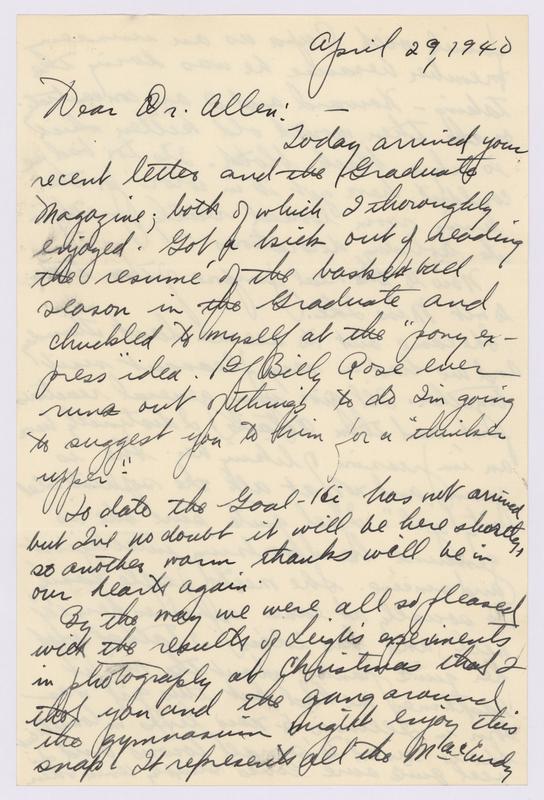 April 29, 1940
Dear Dr. Allen: —
Today arrived your
recent letter and the Graduate
Magazine; both of which I thoroughly
enjoyed. Got a kick out of reading
the resume of the basketball
season in the Graduate and
chuckled to myself at the "pony ex-
press" idea. If Billy Rose ever
runs out of things to do I'm going
to suggest you to him for a "thinker
upper".
To date the Goal-Hi has not arrived
but I've no doubt it will be here shortly,
so another warm thanks will be in
our hearts again.
By the way we were all so pleased
with the results of Leigh's experiments
in photography at Christmas that I
that you and the gang around
the gymnasium might enjoy this
snap. It represents all the MacCurdy